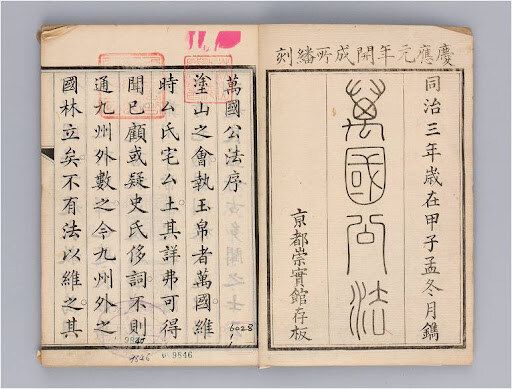 慶應元年開成所繙刻
同治三年歲在甲子孟冬月鐫
萬國公法
京都崇實館存板
萬國公法序
塗山之會執玉帛者萬國維
時厶氏宅厶土其詳弗可得
聞已顧或疑史氏侈詞不則
通九州外數之今九州外之
國林立矣不有法以維之其
6028
1
9846
9846
9846